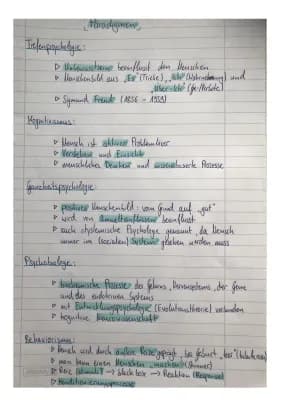 Paradigmen
Tiefenpsychologie:
▷ Unbewusstsein beeinflusst den Menschen
▷ Menschenbild aus "Es" (Triebe), "Ich" (Wahrnehmung) und
"Über-Ich" (
▷ Sigmund Freud (1856 - 1939)
Kognitivismus:
▷ Mensch ist aktiver Problemlöser
▷ Verstehen und Einsicht
▷ menschliches Denken und Prozesse
Ganzheitspsychologie:
▷ positives Menschenbild: vom Grund auf "gut"
▷ wird von Umwelteinflüssen beeinflusst
▷ auch systemische Psychologie genannt, da Mensch
immer im (sozialen) System gesehen werden muss
Psychobiologie:
▷ biochemische Prozesse des Gehirns, Nervensystems, der Gene
und des endokrinen Systems
▷ mit Entwicklungspsychologie (Evolutionstheorie) verbunden
▷ kognitive Neurowissenschaft
Behaviorismus:
▷ Mensch wird durch äußere Reize geprägt, bei Geburt "leer" (
▷ man kann einen Menschen "machen" (
▷ Reiz (stimuli) → black box → Reaktion (Response)
▷ Konditionierungsprozesse